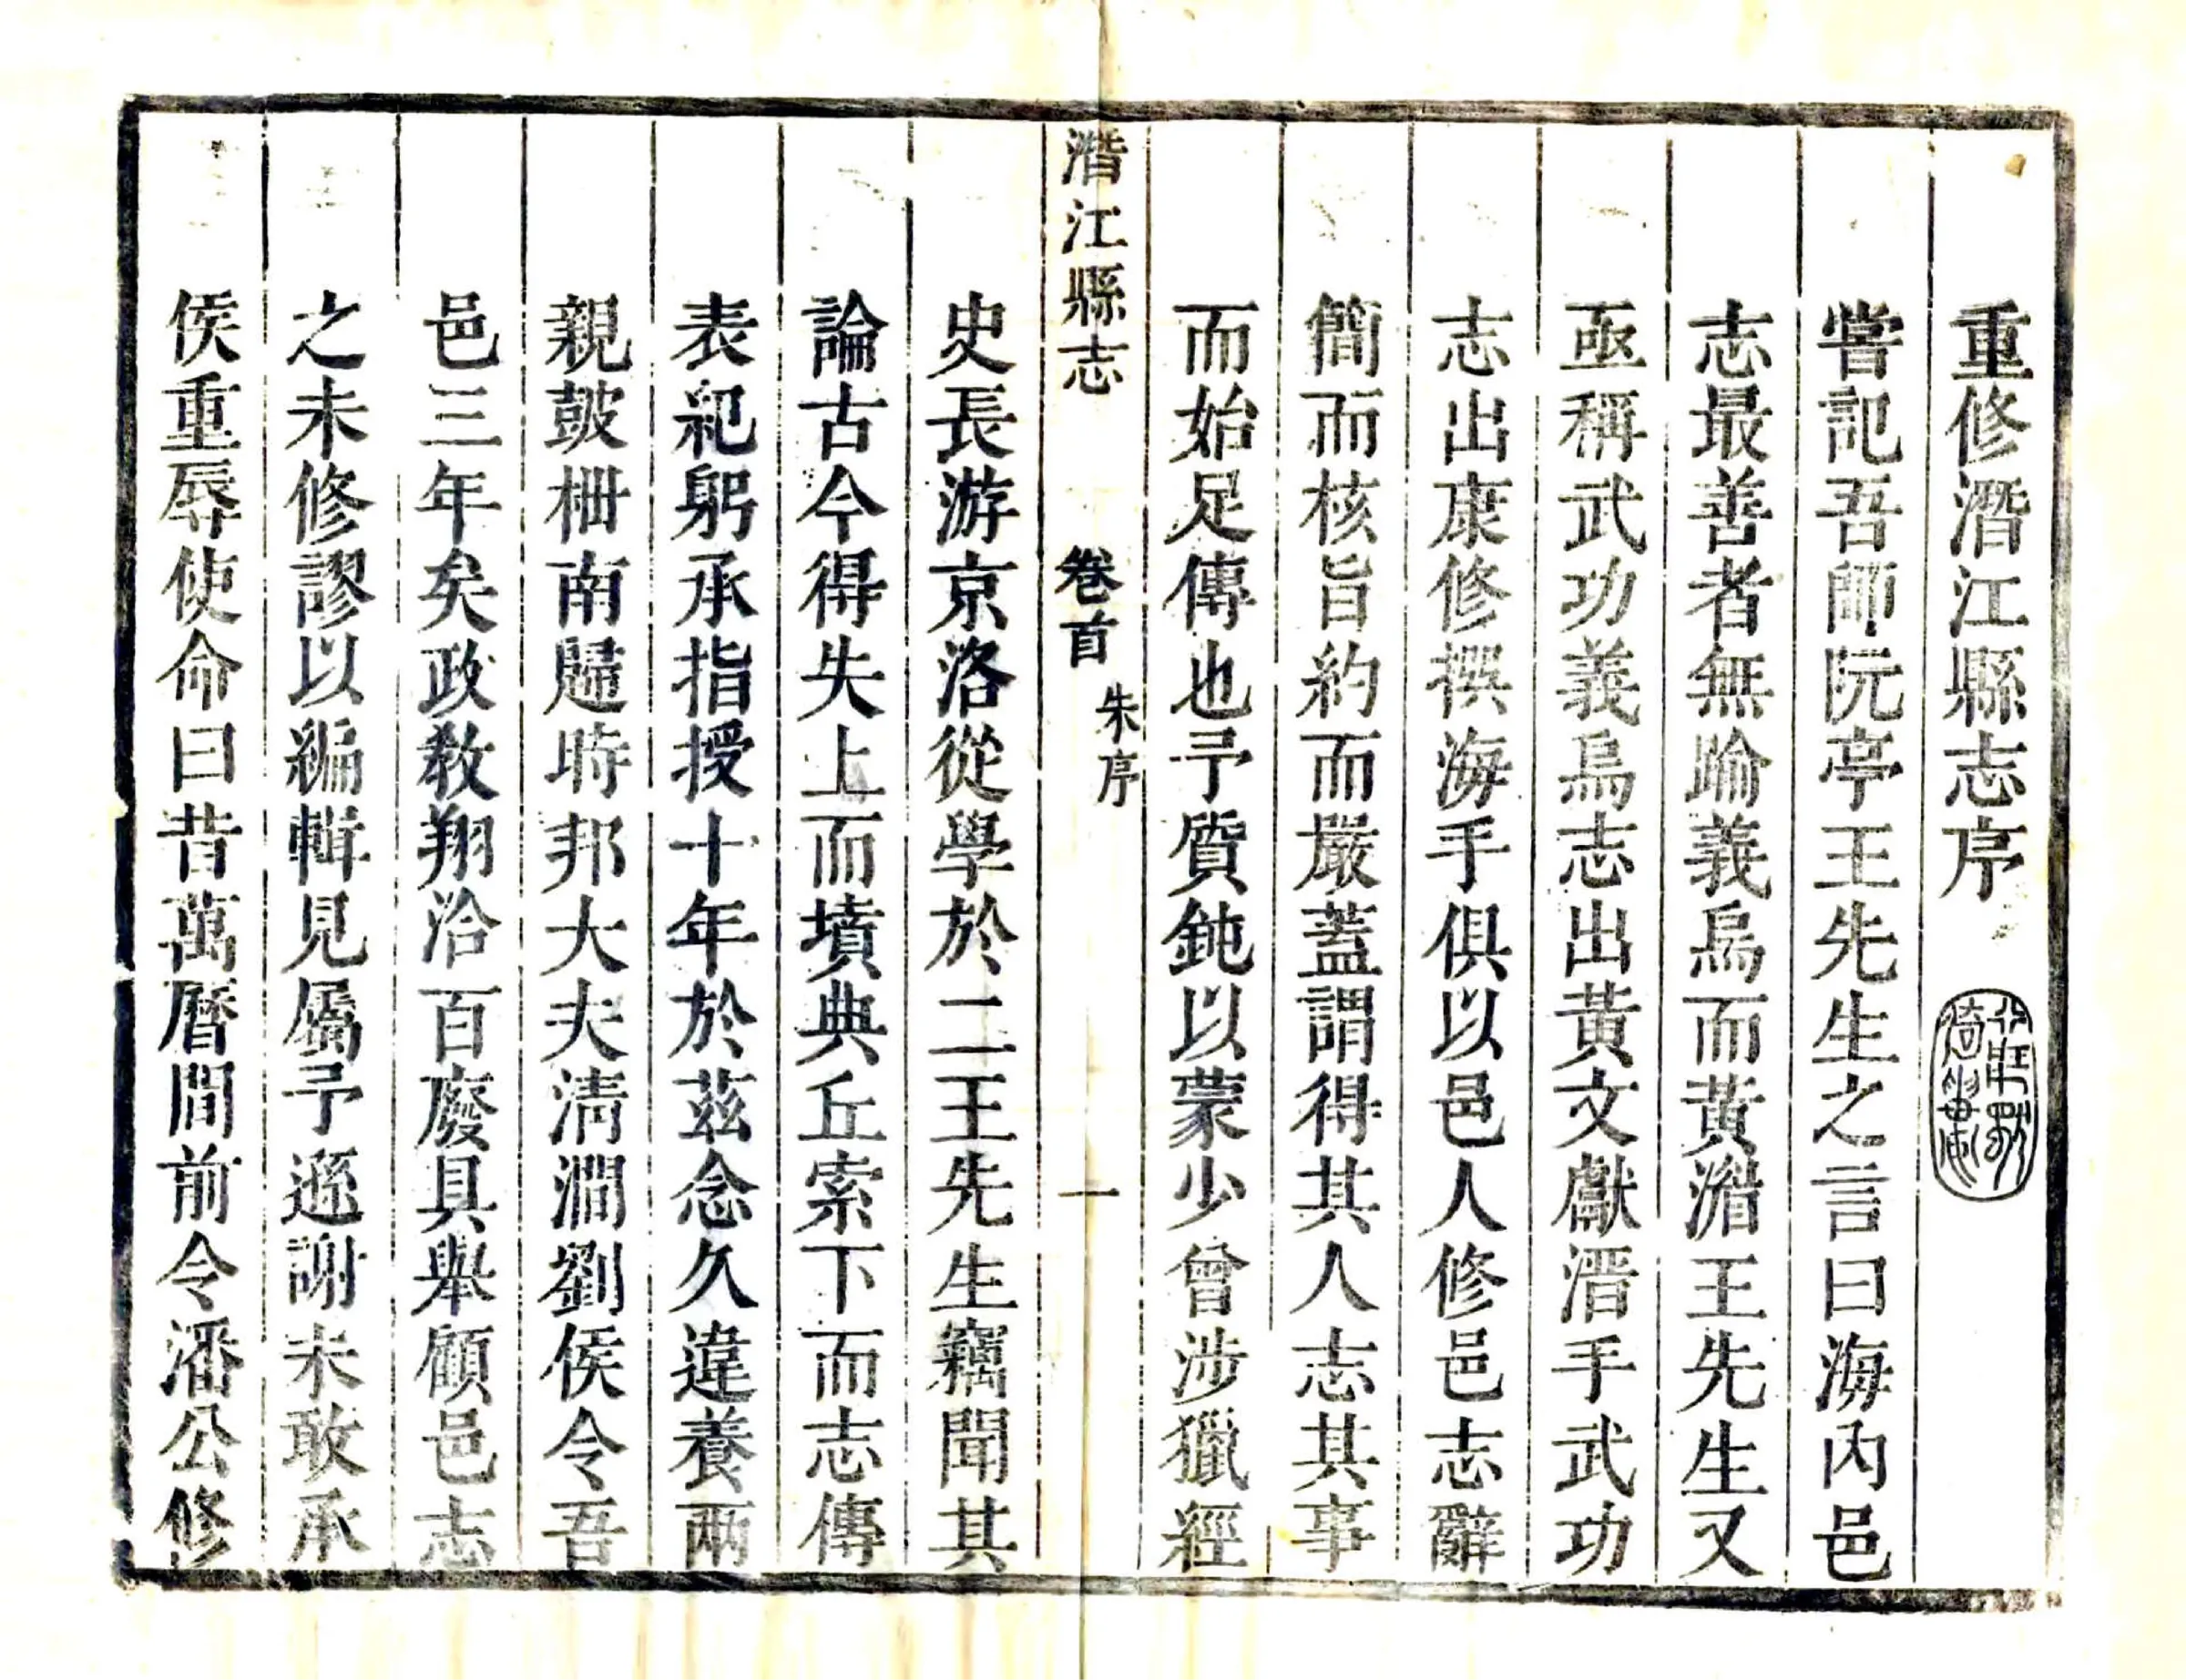 重修潛江縣志序
嘗記吾師阮亭王先生之言曰海內邑
志最善者無踰義烏而黃湄王先生又
亟稱武功義烏志出黃文獻溍手武功
志出康修撰海手俱以邑人修邑志辭
簡而核旨約而嚴蓋謂得其人志其事
而始足傳也予質鈍以蒙少曾涉獵經
潛江縣志 卷首 朱序 一
史長游京洛從學於二王先生竊聞其
論古今得失上而墳典丘索下而志傳
表紀躬承指授十年於茲念久違養兩
親鼓枻南歸時邦大夫清澗劉侯令吾
邑三年矣政教翔洽百廢具舉顧邑志
之未修謬以編輯見屬予遜謝未敢承
侯重辱使命曰昔萬曆間前令潘公修